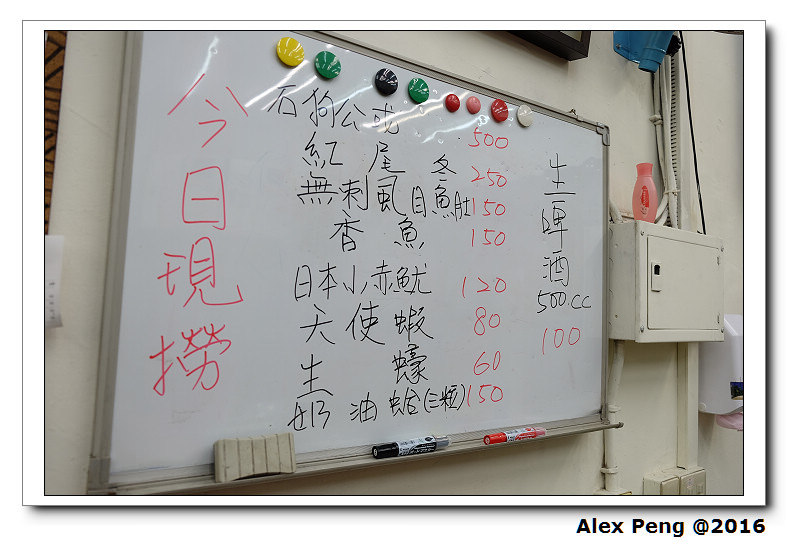 今日現撈
石狗公或 500
紅尾冬 250
無刺風目魚肚 150
香魚 150
日本小赤魷 120
天使蝦 80
生蠔 60
奶油蛤(三粒) 150
生啤酒
500cc
100
Alex Peng @2016